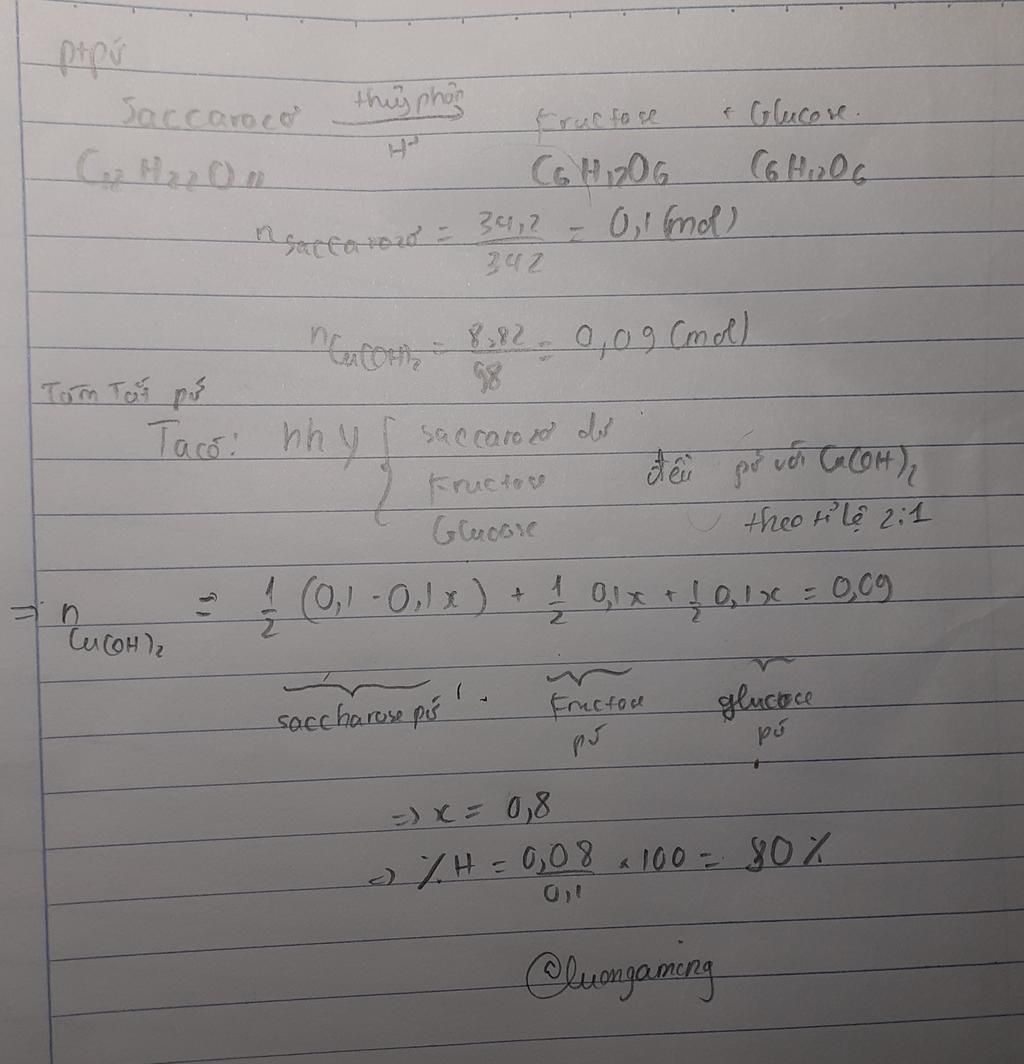 ptpứ
Saccarozơ thủy phân H+ Fructose + Glucose.
C12H22O11 C6H12O6 C6H12O6
n saccarozơ = 34,2/342 = 0,1 (mol)
n Cu(OH)2 = 8,82/98 = 0,09 (mol)
Tóm Tắt pứ
Ta có: hh Y { saccarozơ dư
Fructose đều pứ với Cu(OH)2
Glucose theo tỉ lệ 2:1
=> n Cu(OH)2 = 1/2 (0,1 - 0,1x) + 1/2 0,1x + 1/2 0,1x = 0,09
saccharose pứ Fructose pứ glucose pứ
=> x = 0,8
=> %H = 0,08/0,1 × 100 = 80%
@luongaming